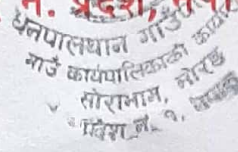 न. प्रदेश,
धनपालथान गाउँपा
गाउँ कार्यपालिकाको कार्या
सोराभाग, मोरङ
प्रदेश नं. १, नेपाल